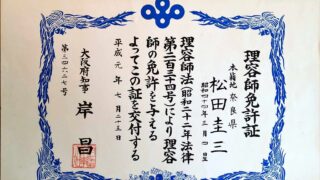 理容師免許証
本籍地 奈良県
松田圭三
理容師法(昭和二十二年法律
第二百三十四号)により理容
師の免許を与える
よってこの証を交付する
平成元年七月二十五日
大阪府知事 岸昌
第三四六二七号